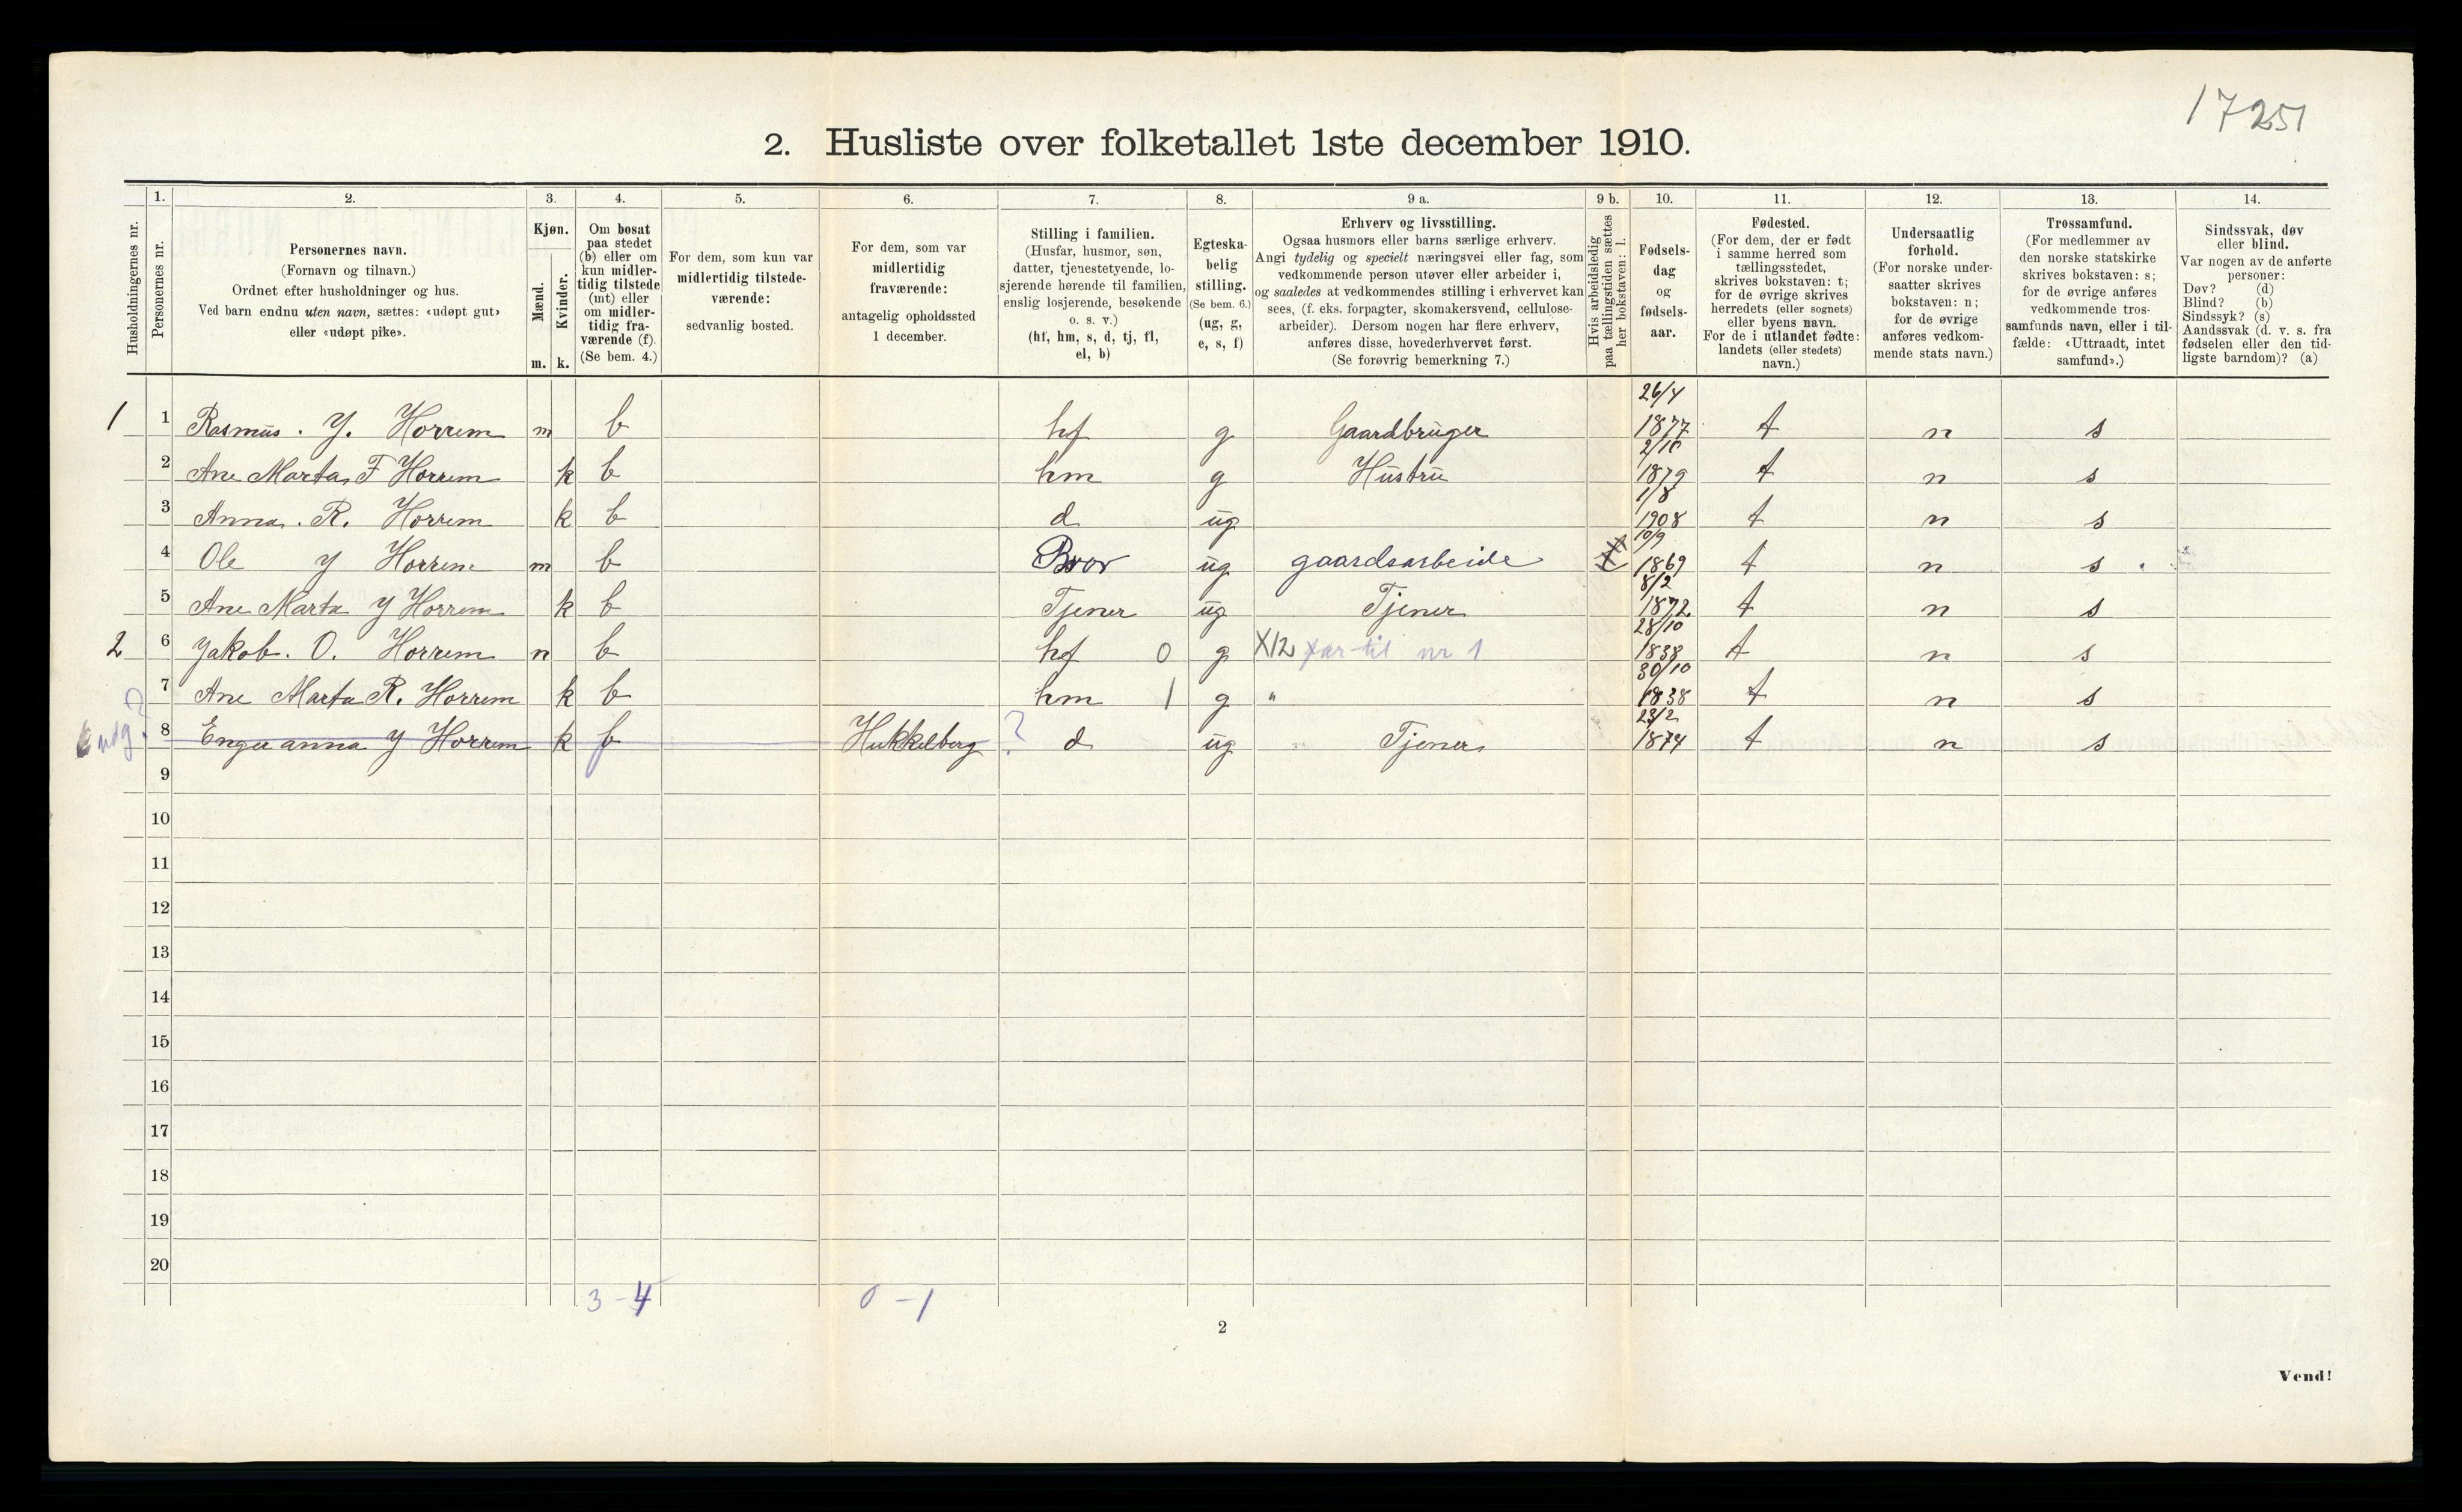 1725
2. Husliste over folketallet 1ste december 1910.
Husholdningernes nr.
1. Personernes nr.
2. Personernes navn.
(Fornavn og tilnavn.)
Ordnet efter husholdninger og hus.
Ved barn endnu uten navn, sættes: «udøpt gut»
eller «udøpt pike».
3. Kjøn.
Mænd. m.
Kvinder. k.
4. Om bosat
paa stedet
(b) eller om
kun midler-
tidig tilstede
(mt) eller
om midler-
tidig fra-
værende (f).
(Se bem. 4.)
5. For dem, som kun var
midlertidig tilstede-
værende:
sedvanlig bosted.
6. For dem, som var
midlertidig
fraværende:
antagelig opholdssted
1 december.
7. Stilling i familien.
(Husfar, husmor, søn,
datter, tjenestetyende, lo-
sjerende hørende til familien,
enslig losjerende, besøkende
o. s. v.)
(hf, hm, s, d, tj, fl,
el, b)
8. Egteska-
belig
stilling.
(Se bem. 6.)
(ug, g,
e, s, f)
9 a. Erhverv og livsstilling.
Ogsaa husmors eller barns særlige erhverv.
Angi tydelig og specielt næringsvei eller fag, som
vedkommende person utøver eller arbeider i,
og saaledes at vedkommendes stilling i erhvervet kan
sees, (f. eks. forpagter, skomakersvend, cellulose-
arbeider). Dersom nogen har flere erhverv,
anføres disse, hovederhvervet først.
(Se forøvrig bemerkning 7.)
9 b. Hvis arbeidsledig
paa tællingstiden sættes
her bokstaven: l.
10. Fødsels-
dag
og
fødsels-
aar.
11. Fødested.
(For dem, der er født
i samme herred som
tællingsstedet,
skrives bokstaven: t;
for de øvrige skrives
herredets (eller sognets)
eller byens navn.
For de i utlandet fødte:
landets (eller stedets)
navn.)
12. Undersaatlig
forhold.
(For norske under-
saatter skrives
bokstaven: n;
for de øvrige
anføres vedkom-
mende stats navn.)
13. Trossamfund.
(For medlemmer av
den norske statskirke
skrives bokstaven: s;
for de øvrige anføres
vedkommende tros-
samfunds navn, eller i til-
fælde: «Uttraadt, intet
samfund».)
14. Sindssvak, døv
eller blind.
Var nogen av de anførte
personer:
Døv? (d)
Blind? (b)
Sindssyk? (s)
Aandssvak (d. v. s. fra
fødselen eller den tid-
ligste barndom)? (a)
1 1 Rasmus. Y. Horrem m b hf g Gaardbruger 26/4 1877 t n s
2 Ane Marta F Horrem k b hm g Hustru 2/10 1879 t n s
3 Anna. R. Horrem k b d ug 1/8 1908 t n s
4 Ole Y Horrem m b Bror ug gaardsarbeide 10/9 1869 t n s
5 Ane Marta Y Horrem k b Tjener ug Tjener 8/2 1872 t n s
2 6 Yakob. O. Horrem m b hf 0 g X12 far til nr 1 28/10 1838 t n s
7 Ane Marta R. Horrem k b hm 1 g " 30/10 1838 t n s
8 Enger anna Y Horrem k f Hukkelberg ? d ug Tjener 23/2 1874 t n s
9
10
11
12
13
14
15
16
17
18
19
20
3 - 4 0 - 1
2
Vend!